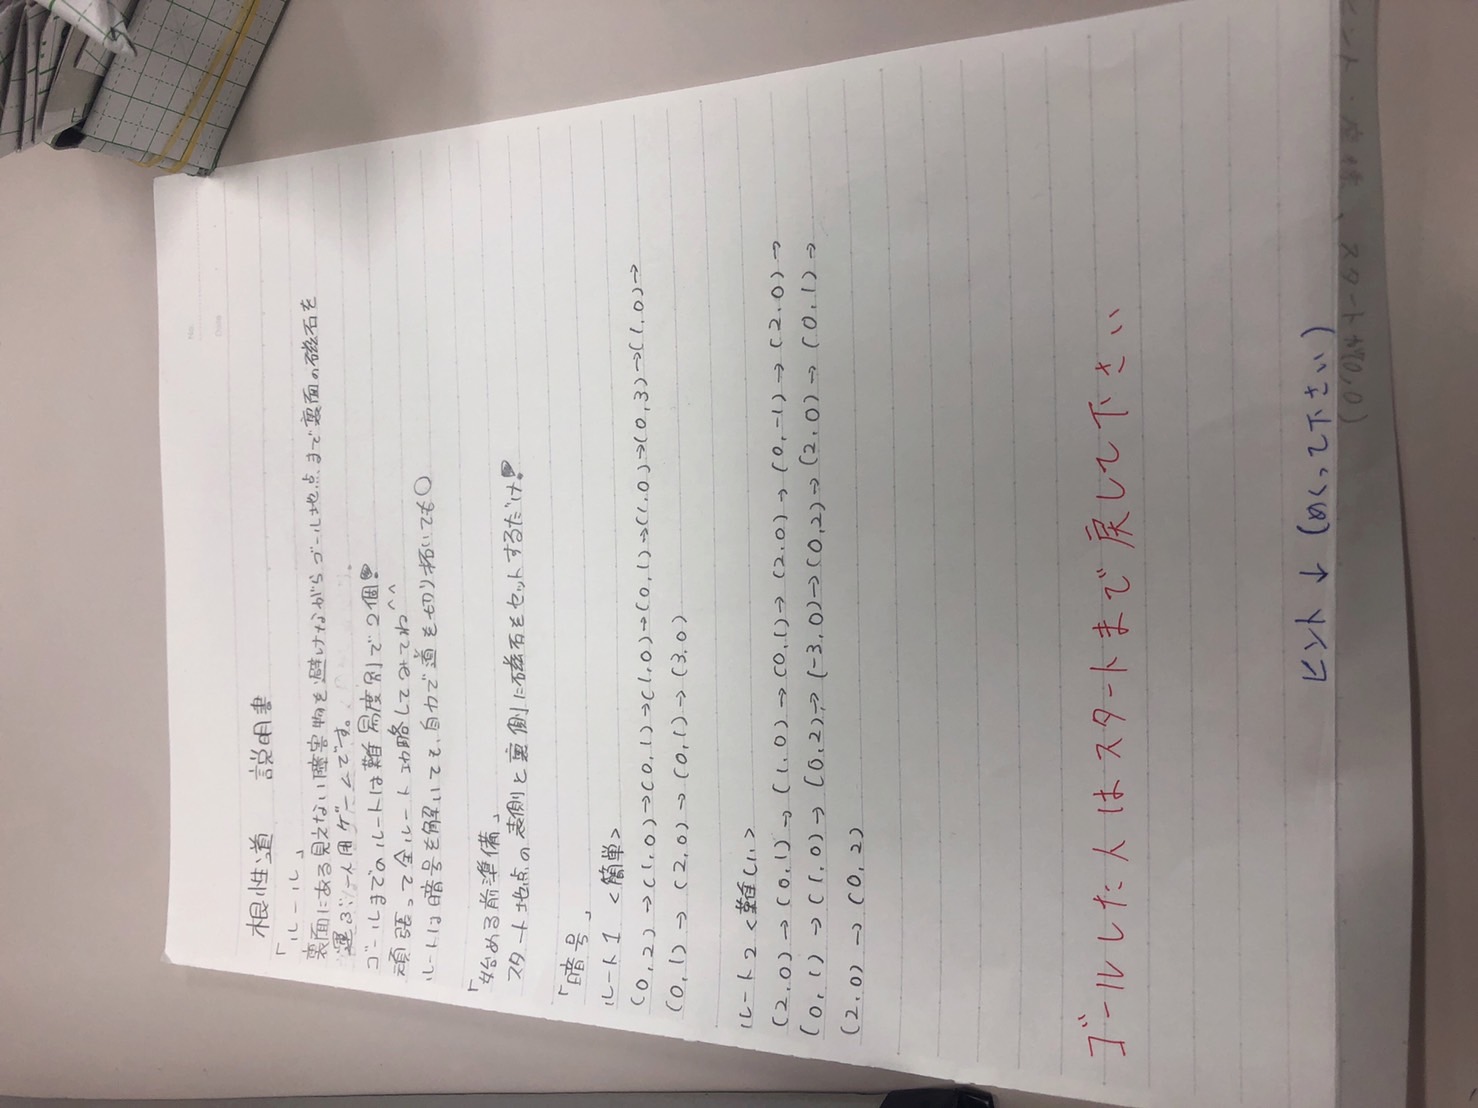 根性道 説明書
「ルール」
裏面にある見えない障害物を避けながらゴール地点まで裏面の磁石を
運ぶ一人用ゲームです。
ゴールまでのルートは難易度別で2個!
頑張って全ルート攻略してみてね^^
ルートは暗号を解いても、自力で道を切り拓いても〇
「始める前準備」
スタート地点の表側と裏側に磁石をセットするだけ!
「暗号」
ルート1 <簡単>
(0,2)→(1,0)→(0,1)→(1,0)→(0,1)→(1,0)→(0,3)→(1,0)→
(0,1)→(2,0)→(0,1)→(3,0)
ルート2 <難しい>
(2,0)→(0,1)→(1,0)→(0,1)→(2,0)→(0,-1)→(2,0)→
(0,1)→(1,0)→(0,2)→(-3,0)→(0,2)→(2,0)→(0,1)→
(2,0)→(0,2)
ゴールした人はスタートまで戻して下さい
ヒント↓(めくって下さい)